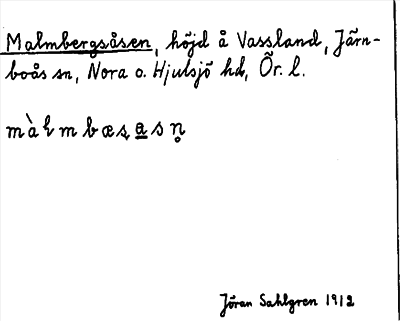 Malmbergsåsen, höjd å Vassland, Järn-
boås sn, Nora o. Hjulsjö hd, Ör. l.
Jöran Sahlgren 1912